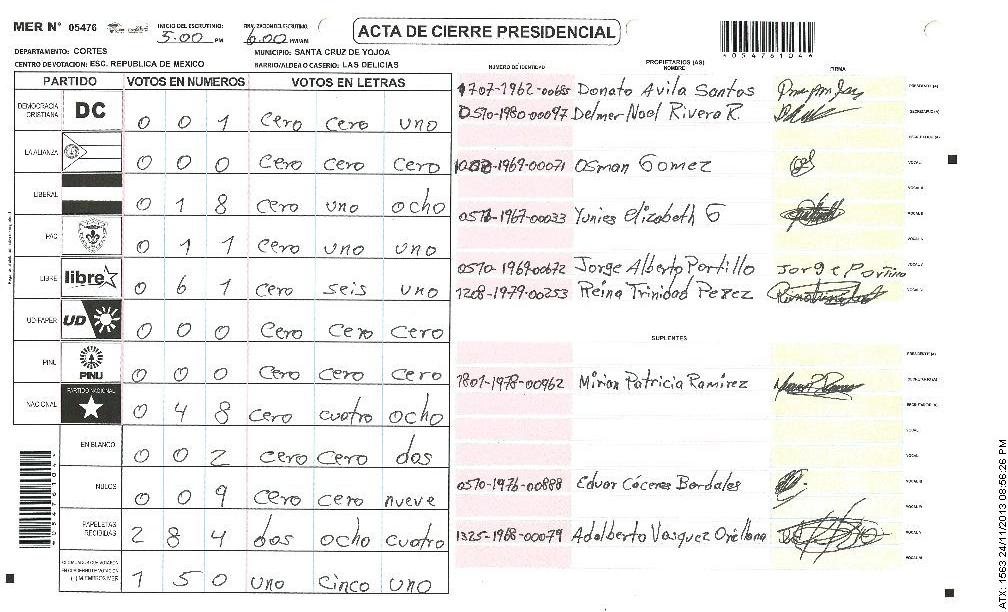 MER N° 05476 INICIO DEL ESCRUTINIO: 5:00 PM FINALIZACION DEL ESCRUTINIO: 6:00 PM/AM ACTA DE CIERRE PRESIDENCIAL
DEPARTAMENTO: CORTES MUNICIPIO: SANTA CRUZ DE YOJOA
CENTRO DE VOTACION: ESC. REPUBLICA DE MEXICO BARRIO/ALDEA O CASERIO: LAS DELICIAS
PARTIDO VOTOS EN NUMEROS VOTOS EN LETRAS
DEMOCRACIA CRISTIANA DC 0 0 1 cero cero uno
LA ALIANZA 0 0 0 cero cero cero
LIBERAL 0 1 8 cero uno ocho
PAC 0 1 1 cero uno uno
LIBRE libre 0 6 1 cero seis uno
UD-FAPER UD 0 0 0 cero cero cero
PINU PINU 0 0 0 cero cero cero
NACIONAL PARTIDO NACIONAL 0 4 8 cero cuatro ocho
EN BLANCO 0 0 2 cero cero dos
NULOS 0 0 9 cero cero nueve
PAPELETAS RECIBIDAS 2 8 4 dos ocho cuatro
1 5 0 uno cinco uno
NUMERO DE IDENTIDAD PROPIETARIOS (AS) NOMBRE FIRMA
1707-1962-00685 Donato Avila Santos PRESIDENTE (A)
0510-1980-00097 Delmer Noel Rivera R. SECRETARIO (A)
-1969-00071 Osman Gomez
-1967-00033 Yunies Elizabeth G
0510-1969-00672 Jorge Alberto Portillo Jorge Portillo
1208-1979-00253 Reina Trinidad Perez
SUPLENTES
PRESIDENTE (A)
1801-1978-00962 Mirian Patricia Ramirez
0510-1976-00888 Eduar Cáceres Bardales
1325-1968-00079 Adalberto Vasquez Orellana
054761044
ATX: 1563 24/11/2013 08:56:26 PM